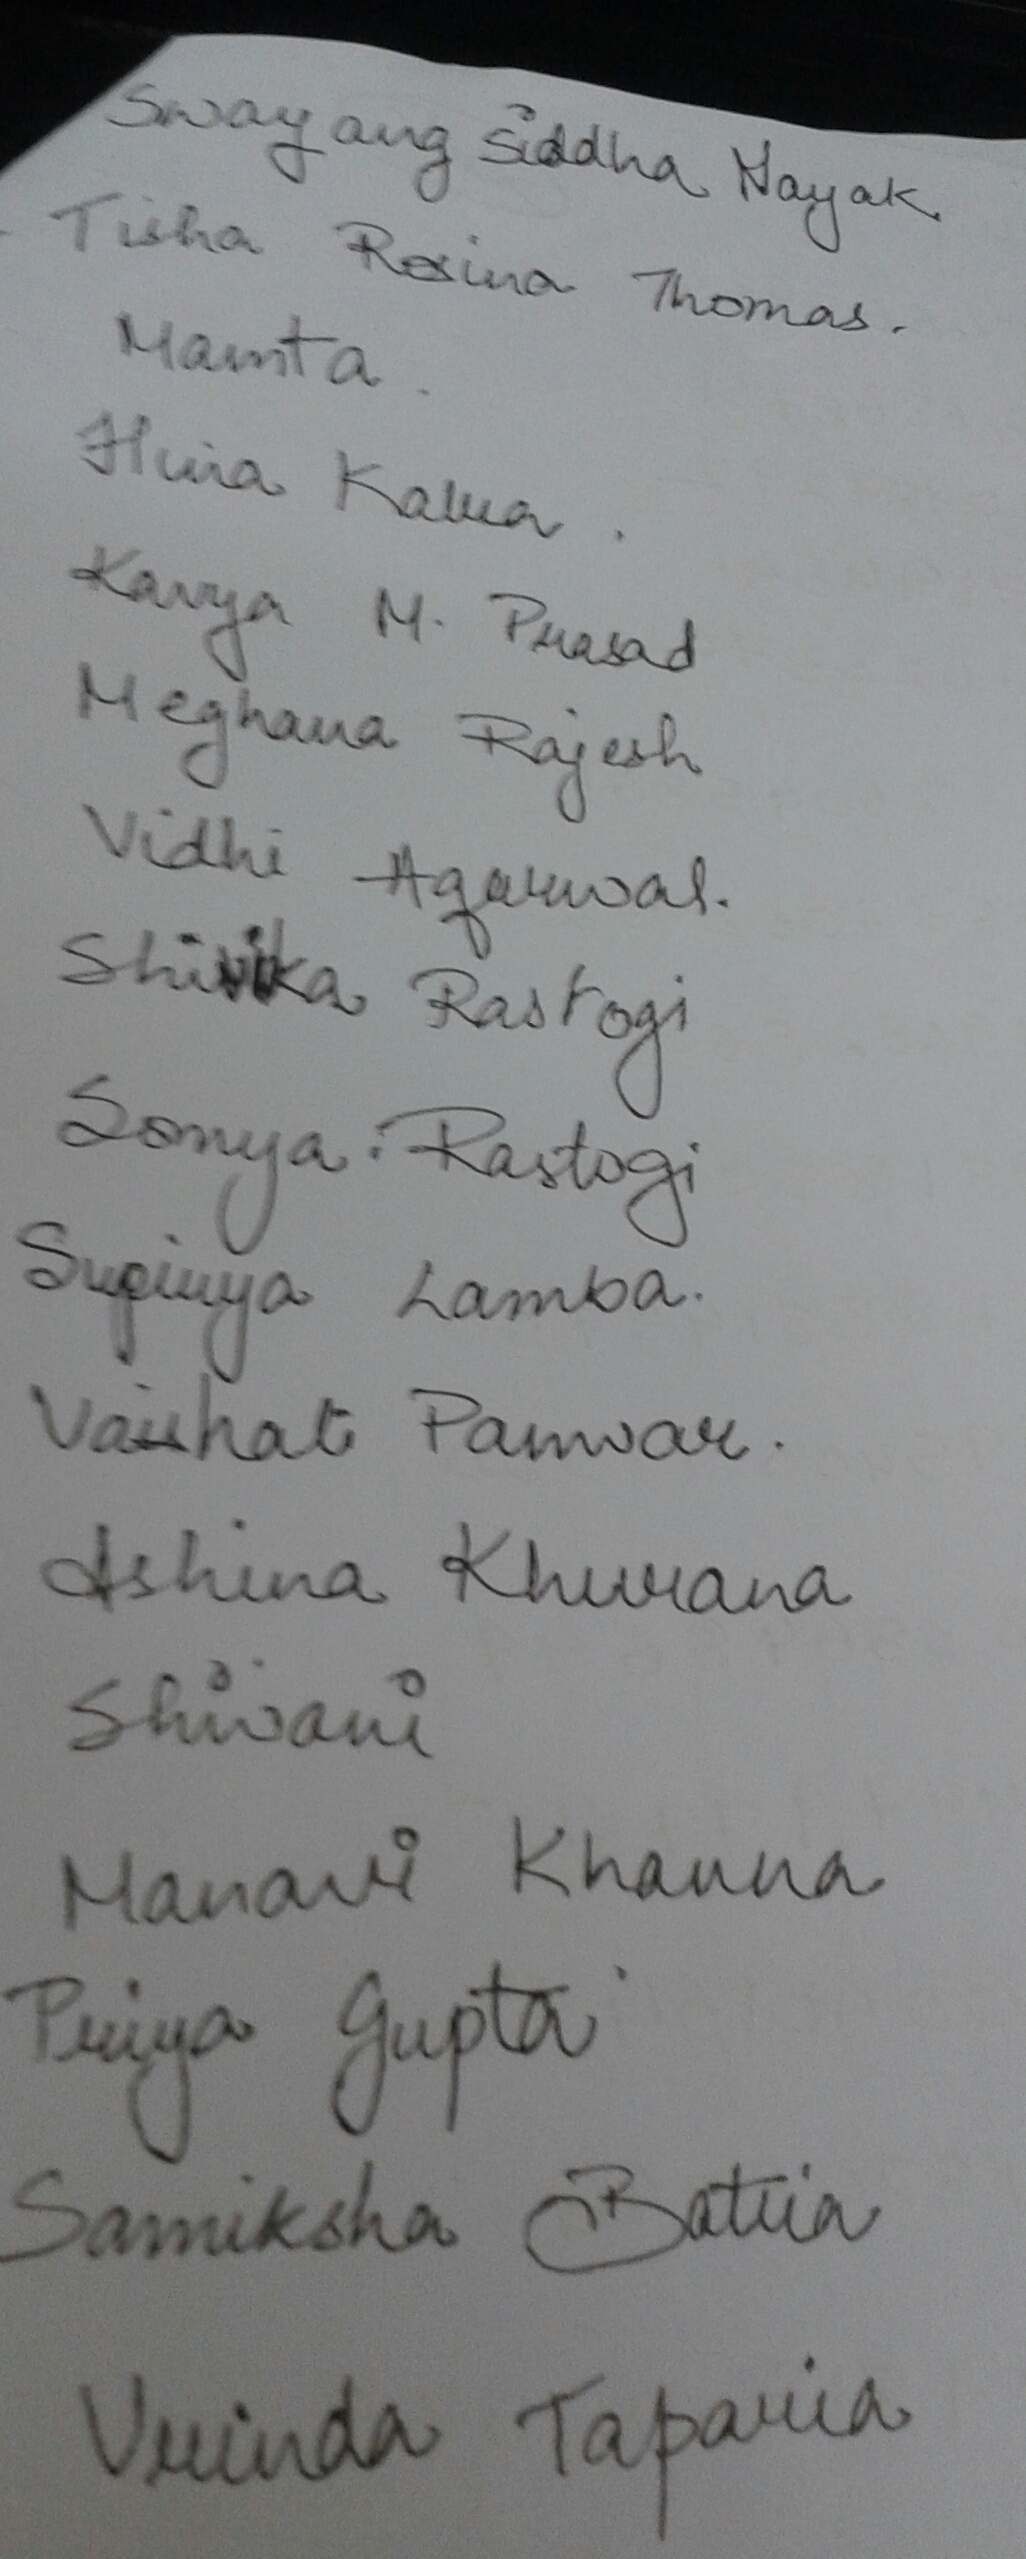 Swayang Siddha Nayak
Tisha Rosina Thomas.
Mamta.
Hina Kalua.
Kavya M. Prasad
Meghana Rajesh
Vidhi Agarwal.
Shivika Rastogi
Somya Rastogi
Supriya Lamba.
Vaishali Panwar.
Ashina Khurana
Shivani
Manavi Khanna
Priya Gupta
Samiksha Batria
Vrinda Taparia